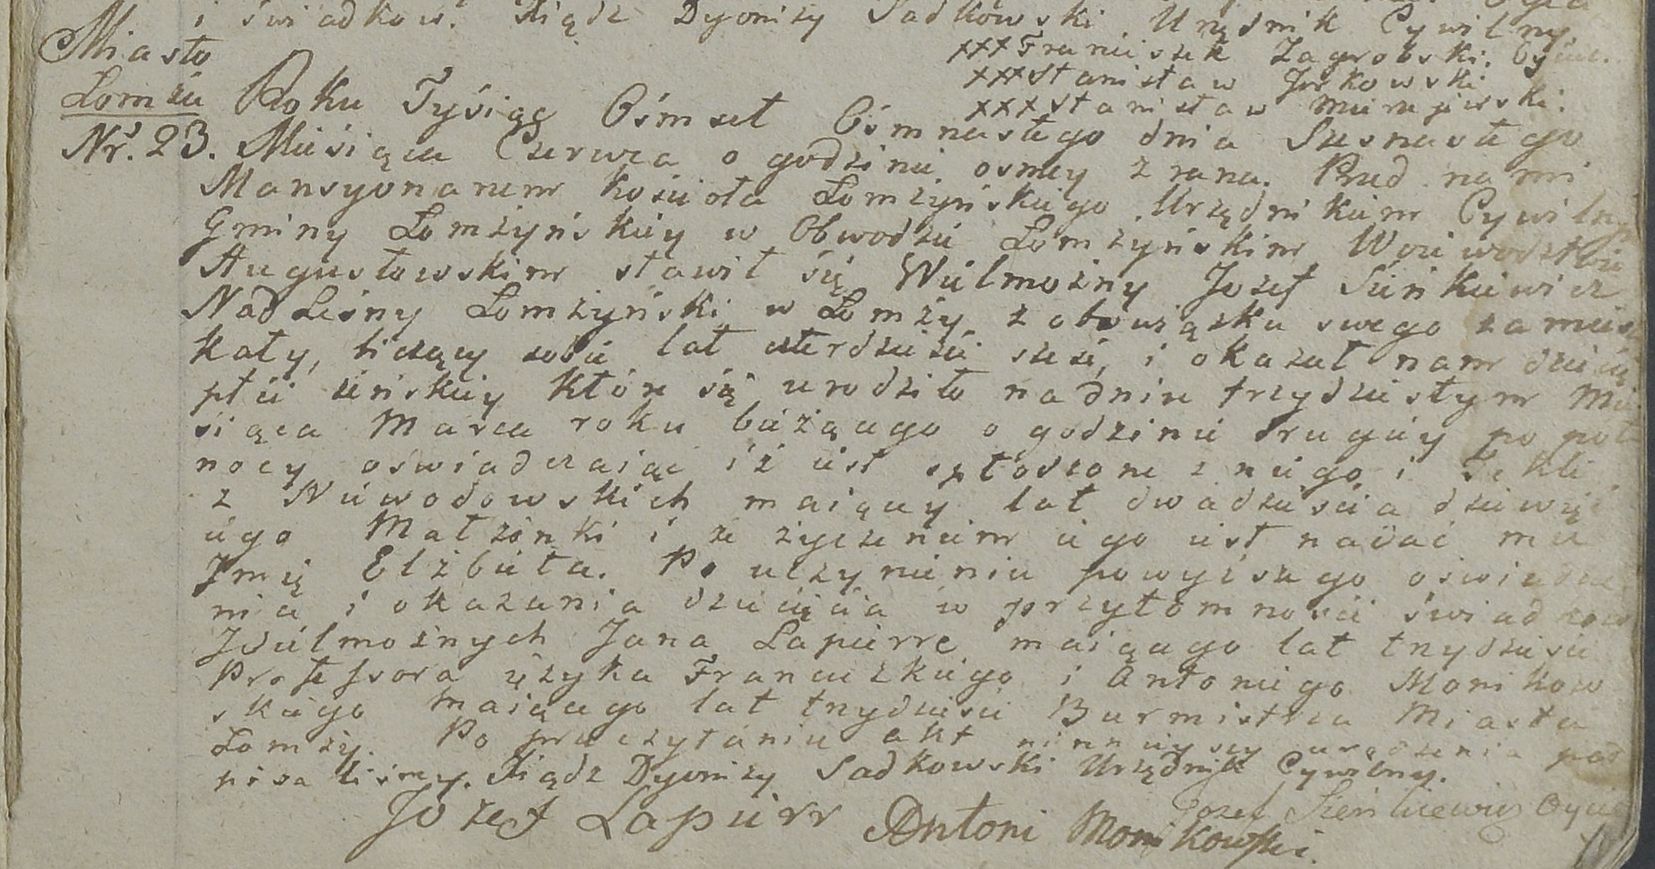 i świadków. Xiądz Dyonizy Sadkowski Urzędnik Cywilny.
Miasto
xxx Franciszek Zagrobski.
xxx Stanisław Jrkowski
xxx Stanisław
Łomża
Roku Tysiąc Ośmset Ośmnastego dnia Szesnastego
Nr. 23. Miesiąca Czerwca o godzinie osmey z rana. Przed nami
Mansyonarzem kościoła Łomżyńskiego Urzędnikiem Cywilnym
Gminy Łomżyńskiey w Obwodzie Łomżyńskim Woiewodztwie
Augustowskim stawił się Wielmożny Jozef Sieńkiewicz
Nadleśny Łomżyński w Łomży z obowiązku swego zamiesz
kały, liczący sobie lat czterdzieści sześć, i okazał nam dziecię
płci żeńskiey które się urodziło na dniu trzydziestym Mie
siąca Marca roku bieżącego o godzinie drugiey po pół
nocy oświadczaiąc iż iest spłodzone z niego i Tekli
z Niewodowskich maiącey lat dwadzieścia dziewięć
iego Małżonki i że życzeniem iego iest nadać mu
Jmię Elżbieta. Po uczynieniu powyższego oświadcze
nia i okazania dziecięcia w przytomności świadków
Wielmożnych Jana Lapierre maiącego lat trzydzieści
Professora ięzyka Francuzkiego i Antoniego Monikow
skiego maiącego lat trzydzieści Burmistrza Miasta
Łomży. Po przeczytaniu akt ninieyszy urodzenia pod
pisaliśmy. Xiądz Dyonizy Sadkowski Urzędnik Cywilny.
Jozef Sieńkiewicz Oyciec
Jozef Lapierr Antoni Monikowski.